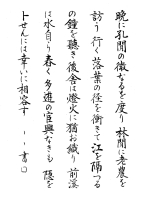 晩に孔間の微なるを度り 林間に老農を
訪う 行く落葉の径を衝きて江を隔つる
の鐘を聴き 後舎は燈火に猶お織り 前渓
は水自ら舂く 多逕の宦興なきも 隠を
卜せんには幸いに相容す 書